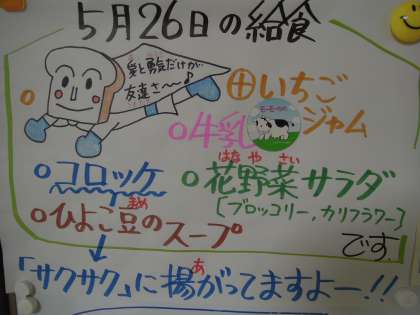 5月26日の給食
愛と勇気だけが
友達さ〜〜♪
⊕いちご
ジャム
○牛乳
○コロッケ
はな や さい
○花野菜サラダ
[ブロッコリー,カリフラワー]
まめ
○ひよこ豆のスープ
です
あ
「サクサク」に揚がってますよー!!